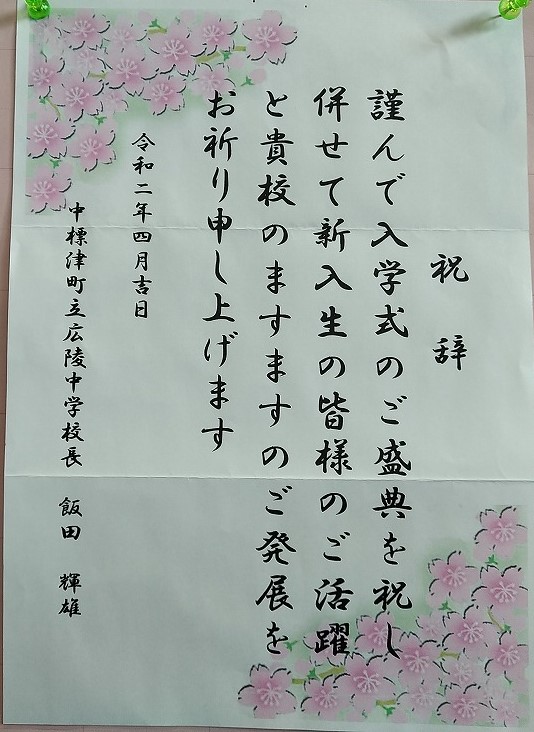 祝辞
謹んで入学式のご盛典を祝し
併せて新入生の皆様のご活躍
と貴校のますますのご発展を
お祈り申し上げます
令和二年四月吉日
中標津町立広陵中学校長 飯田 輝雄